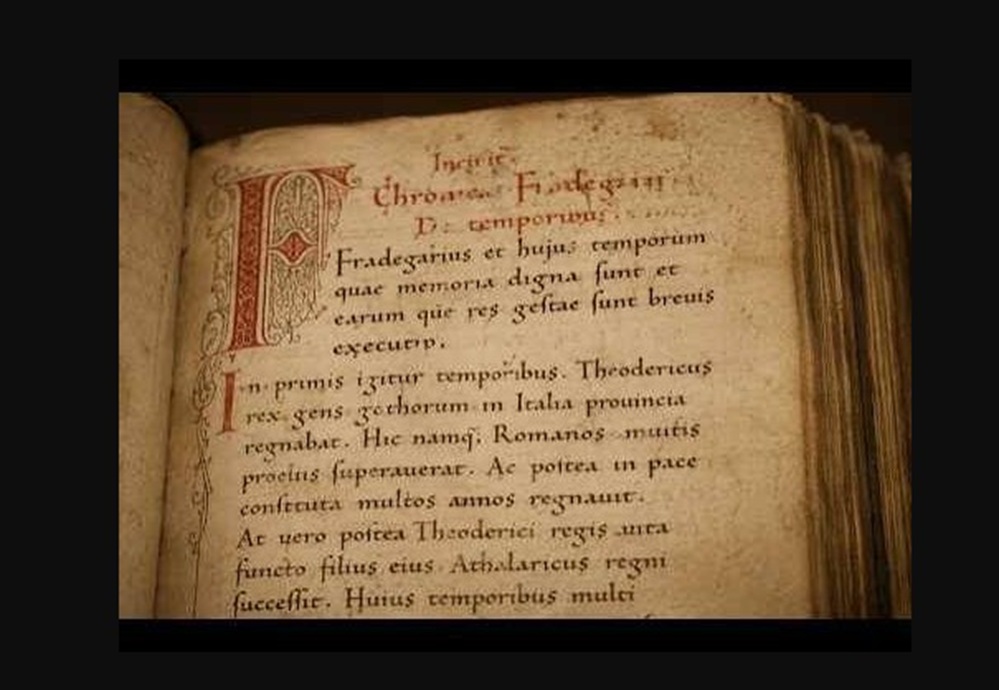 Incipit
Chronica Fradegarii
De temporibus
Fradegarius et hujus temporum
quae memoria digna sunt et
earum que res gestae sunt brevis
In primis igitur temporibus. Theodericus
rex gens gothorum in Italia prouincia
regnabat. Hic namq; Romanos multis
proeliis superauerat. Ac postea in pace
multos annos regnauit.
At uero postea Theoderici regis uita
functo filius eius Athalaricus regni
successit. Huius temporibus multi